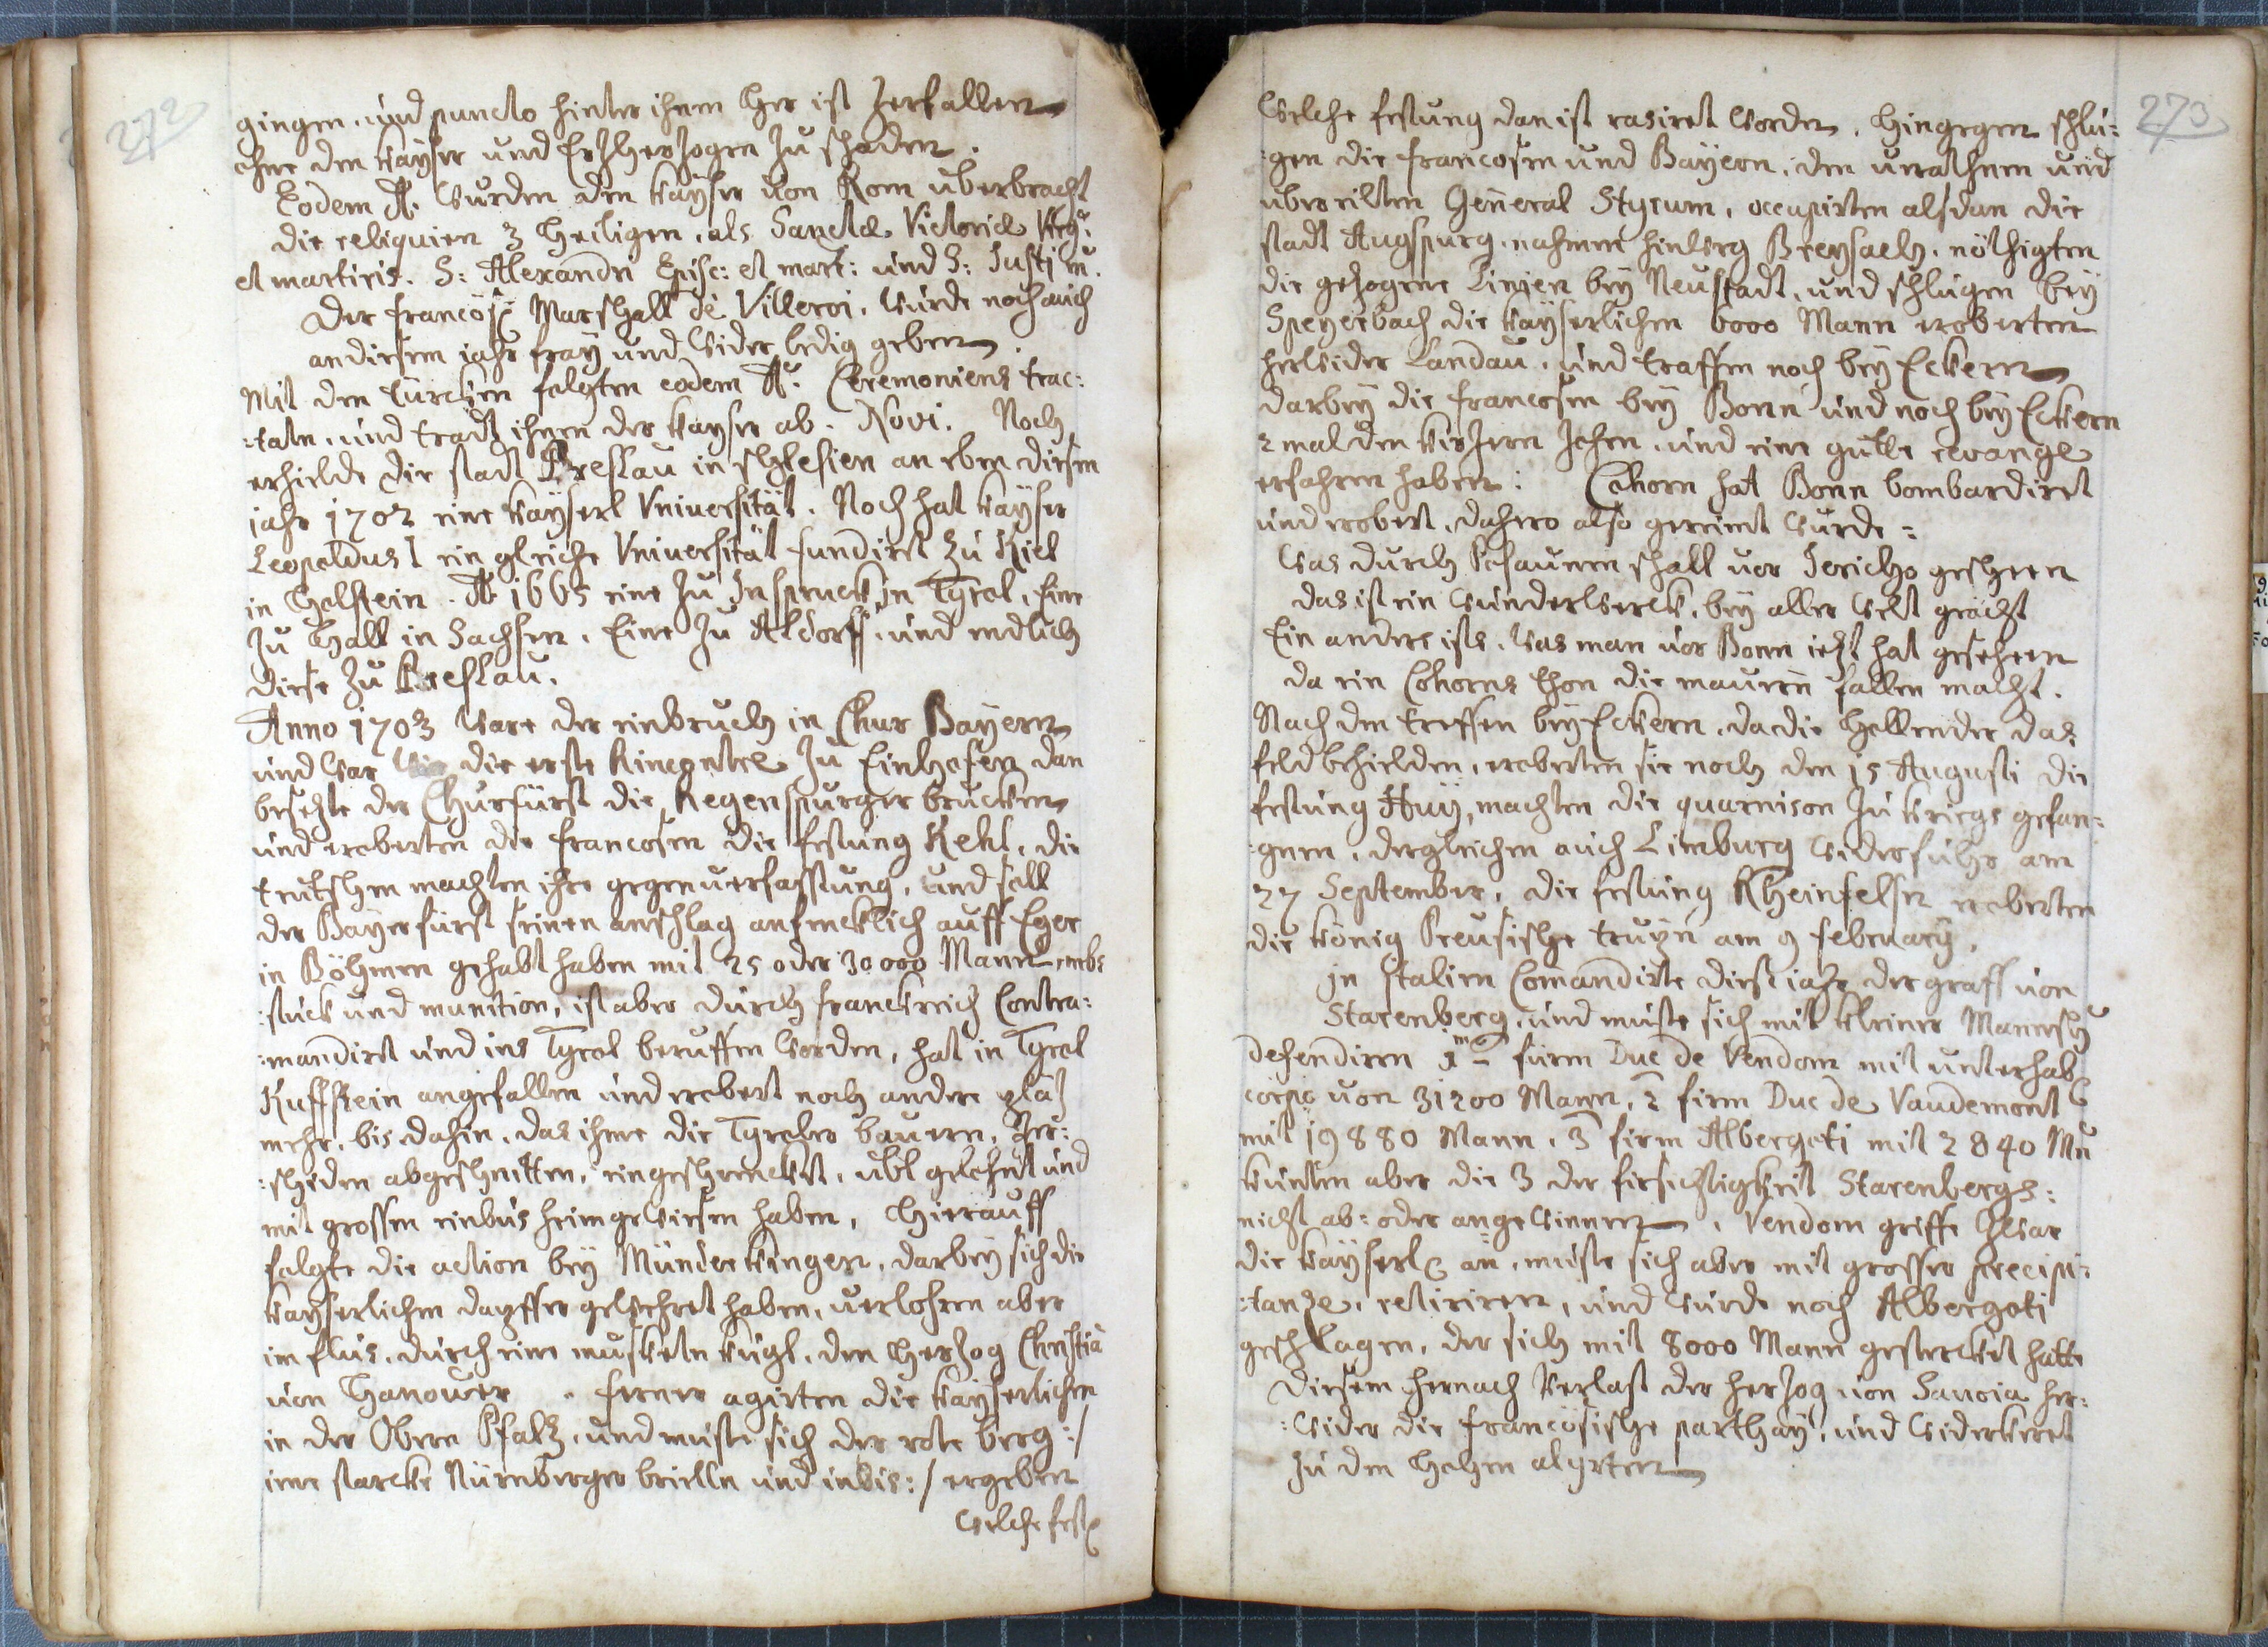 272
gingen, und puncto hinter ihnen her ist Zerfallen
ohne den kaÿser und ErzherZogen Zu schaden.
Eodem Aõ. wurden den kaÿser von Rom uberbracht
die reliquien 3 Heiligen, als Sanctæ Victoriæ Virg:
et martiris. S: Alexandri Episc: et mart: und S: Justi m.
der francös: Marschall de Villeroi, wurde noch auch
an diesem jahr fraÿ und wider ledig geben.
Mit den Türcken folgten eodem Aõ. Ceremoniens trac:
:taten, und tradt ihnen der kayser ab. Novi. Noch
erhielde die stadt Breslau in schlesien an eben diesem
jahr 1702 eine kaÿserl Vniversität. Noch hat kaÿser
Leopoldus I ein gleiche Vniversität fundirt zu Kiel
in Holstein. Aõ 1665 eine Zu Jnspruck in Tÿrol, Eine
Zu Hall in Sachsen. Eine Zu Altdorff, und endlich
diese Zu Breslau.
Anno 1703 ware der einbruch in Chur Baÿern
und war die erste Rincontre Zu Einhofen, dan
besezte der Churfürst die Regenspurger brucken
und eroberten die francosen die festung Kehl, die
teutschen machten ihre gegenverfassung, und soll
der Baÿerfürst seinen anschlag anfencklich auff Eger
in Böhmen gehabt haben mit 25 oder 30000 Mann nebs
:stuck und munition, ist aber durch franckreich Contra:
:mandirt und ins Tÿrol beruffen worden, hat in Tÿrol
Kuffstein angefallen und erobert noch andere pläz
mehr, bis dahin, das ihme die Tÿroler bauren,
:scheiden abgeschnitten, eingeschrenckt, ubl gelehnt und
mit grossen einbus heimgewiesen haben, Hierauff
folgte die action beÿ Münderkingen, darbeÿ sich die
kaÿserlichen dapffer gewehret haben, verlohren aber
im flus, durch eine musketen kugl, den HerZog Christiã
von Hanover. ferner agirten die kaÿserlichen
in der Obern Pfalz, und muste sich der rote berg :/
eine starcke Nürnberger und :/ ergeben
welche fest:
273
Welche festung dan ist rasiret worden. Hingegen schlu:
:gen die francosen und Baÿern, den und
ubereilten General Styrum, occupirten alsdan die
stadt Augspurg, nahmen hinweg Breysach, nöthigten
die gezogene Linien beÿ Neustadt, und schlugen beÿ
Speyerbach die kaÿserlichen 6000 Mann eroberten
herwider Landau, und traffen noch beÿ Eckern
darbeÿ die francosen beÿ Bonn und noch beÿ Eckern
2 mal den kürZern Zohen, und eine gutte revange
erfahren haben: Cohorn hat Bonn bombardiret
und erobert, dahero also gereimt wurde:
Was durch Posaunen schall vor Jericho geschehen
das ist ein wunderwerck, beÿ aller welt geacht
Ein anders ists, was man vor Bonn iezt hat gesehen
da ein Cohorns thon die mauren fallen macht.
Nach den treffen beÿ Eckern, da die Hollender das
feld behielden, eroberten sie noch den 15 Augusti die
festung Huÿ, machten die quarnison Zu kriegs gefan:
:gnen, dergleichen auch Limburg widerfuhr am
27 September, die festung Rheinfelsen eroberten
die könig Preusische trupn am 9 februarÿ.
Jn Italien Comandirte dieses jahr der graff von
Starenberg, und muste sich mit kleiner Mansch
defendiren 1mo fürm Duc de Vendom mit unterhab:
corpo von 31200 Mann, 2 firm Duc de Vaudemont
mit 19880 Mann. 3 firm Albergoti mit 2840 Mn
kunten aber die 3 der firsichtigkeit Starenbergs:
nicht ab: oder angewinnen. Vendom griffe Zwar
die kaÿserl: an, muste sich aber mit grosser precipi:
:tanze, retiriren, und wurde noch Albergoti
geschlagen, der sich mit 8000 Mann gestercket hatte
diesem hernach verlast der herZog von Savoia her:
:wider die francösische parthaÿ, und widerkeret
Zu den Hohen aljrten